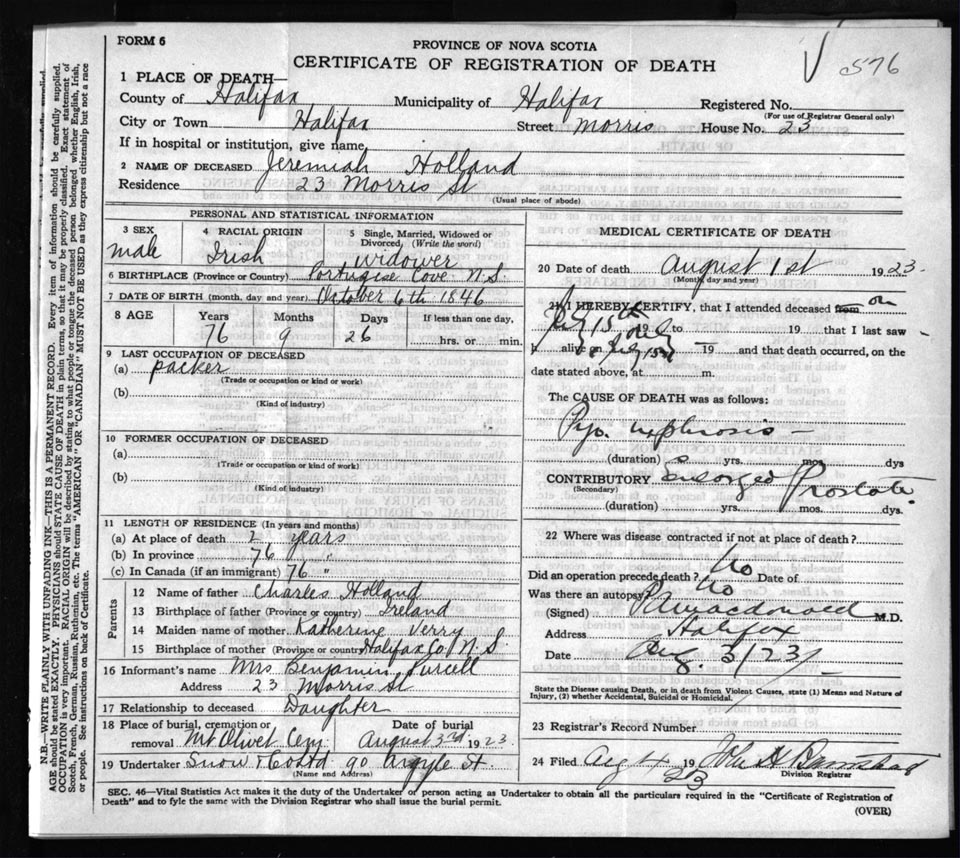 FORM 6
576
PROVINCE OF NOVA SCOTIA
CERTIFICATE OF REGISTRATION OF DEATH
1 PLACE OF DEATH—
County of Halifax Municipality of Halifax Registered No.
(For use of Registrar General only)
City or Town Halifax Street Morris House No. 23
If in hospital or institution, give name
2 NAME OF DECEASED Jeremiah Holland
Residence 23 Morris St
(Usual place of abode)
PERSONAL AND STATISTICAL INFORMATION
3 SEX male
4 RACIAL ORIGIN Irish
5 Single, Married, Widowed or Divorced, (Write the word) widower
6 BIRTHPLACE (Province or Country) Portugise Cove N.S.
7 DATE OF BIRTH (month, day and year) October 6th 1846
8 AGE Years Months Days If less than one day,
76 9 26 hrs. or min.
9 LAST OCCUPATION OF DECEASED
(a) packer
(Trade or occupation or kind or work)
(b)
(Kind of industry)
10 FORMER OCCUPATION OF DECEASED
(a)
(Trade or occupation or kind of work)
(b)
(Kind of industry)
11 LENGTH OF RESIDENCE (In years and months)
(a) At place of death 2 years
(b) In province 76 "
(c) In Canada (if an immigrant) 76 "
Parents
12 Name of father Charles Holland
13 Birthplace of father (Province or country) Ireland
14 Maiden name of mother Katherine Verry
15 Birthplace of mother (Province or country) Halifax Co. N.S.
16 Informant's name Mrs Benjamin Purcell
Address 23 Morris St
17 Relationship to deceased Daughter
18 Place of burial, cremation or Date of burial
removal Mt Olivet Cem. August 3rd 1923
19 Undertaker Snow & Co Ltd 90 Argyle St.
(Name and Address)
MEDICAL CERTIFICATE OF DEATH
20 Date of death August 1st 1923.
(Month, day and year)
21 I HEREBY CERTIFY, that I attended deceased from on
July 15th 19 to 19 that I last saw
alive on July 15th 19 and that death occurred, on the
date stated above, at m.
The CAUSE OF DEATH was as follows:
Pyo. nephrosis —
(duration) yrs. mos. dys
CONTRIBUTORY Enlarged Prostate.
(Secondary)
(duration) yrs. mos. dys.
22 Where was disease contracted if not at place of death?
Did an operation precede death? No Date of
Was there an autopsy? No
(Signed) Macdonald M.D.
Address Halifax
Date Aug. 3/23
State the Disease causing Death, or in death from Violent Causes, state (1) Means and Nature of
Injury, (2) whether Accidental, Suicidal or Homicidal.
23 Registrar's Record Number
24 Filed Aug 4 1923 John H Barnstead
Division Registrar
SEC. 46—Vital Statistics Act makes it the duty of the Undertaker or person acting as Undertaker to obtain all the particulars required in the "Certificate of Registration of
Death" and to fyle the same with the Division Registrar who shall issue the burial permit.
(OVER)
N.B.—WRITE PLAINLY WITH UNFADING INK—THIS IS A PERMANENT RECORD. Every item of information should be carefully supplied.
AGE should be stated EXACTLY. PHYSICIANS should STATE CAUSE OF DEATH in plain terms, so that it may be properly classified. Exact statement of
OCCUPATION is very important. RACIAL ORIGIN will be described by stating to what people or tongue the deceased person belonged whether English, Irish,
Scotch, French, German, Russian, Ruthenian, etc. The terms "AMERICAN" OR "CANADIAN" MUST NOT BE USED as they express citizenship but not a race
or people. See instructions on back of Certificate.